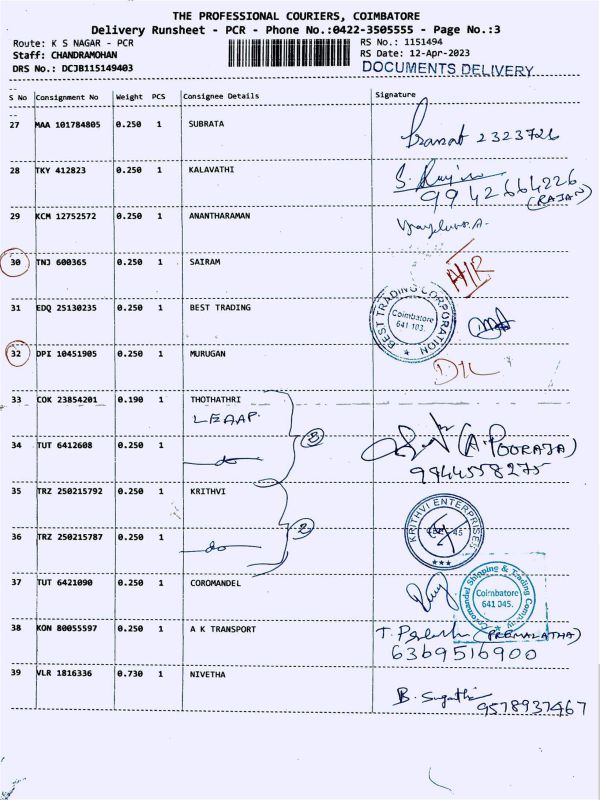 THE PROFESSIONAL COURIERS, COIMBATORE
Delivery Runsheet - PCR - Phone No.:0422-3505555 - Page No.:3
Route: K S NAGAR - PCR
RS No.: 1151494
Staff: CHANDRAMOHAN
RS Date: 12-Apr-2023
DRS No.: DCJB115149403
DOCUMENTS DELIVERY
S No Consignment No Weight PCS Consignee Details Signature
27 MAA 101784805 0.250 1 SUBRATA
2323726
28 TKY 412823 0.250 1 KALAVATHI
9942664226
(RAJAN)
29 KCM 12752572 0.250 1 ANANTHARAMAN
30 TNJ 600365 0.250 1 SAIRAM
31 EDQ 25130235 0.250 1 BEST TRADING
BEST TRADING CORPORATION
Coimbatore
641 103.
32 DPI 10451905 0.250 1 MURUGAN
DIL
33 COK 23854201 0.190 1 THOTHATHRI
LEAAP.
2
34 TUT 6412608 0.250 1
do
(A. POORAJA)
9944558275
35 TRZ 250215792 0.250 1 KRITHVI
KRITHVI ENTERPRISES
2
36 TRZ 250215787 0.250 1
do
37 TUT 6421090 0.250 1 COROMANDEL
Coromandel Shipping & Trading Company
Coimbatore
641 045.
38 KON 80055597 0.250 1 A K TRANSPORT
(PREMALATHA)
6369516900
39 VLR 1816336 0.730 1 NIVETHA
9578937467